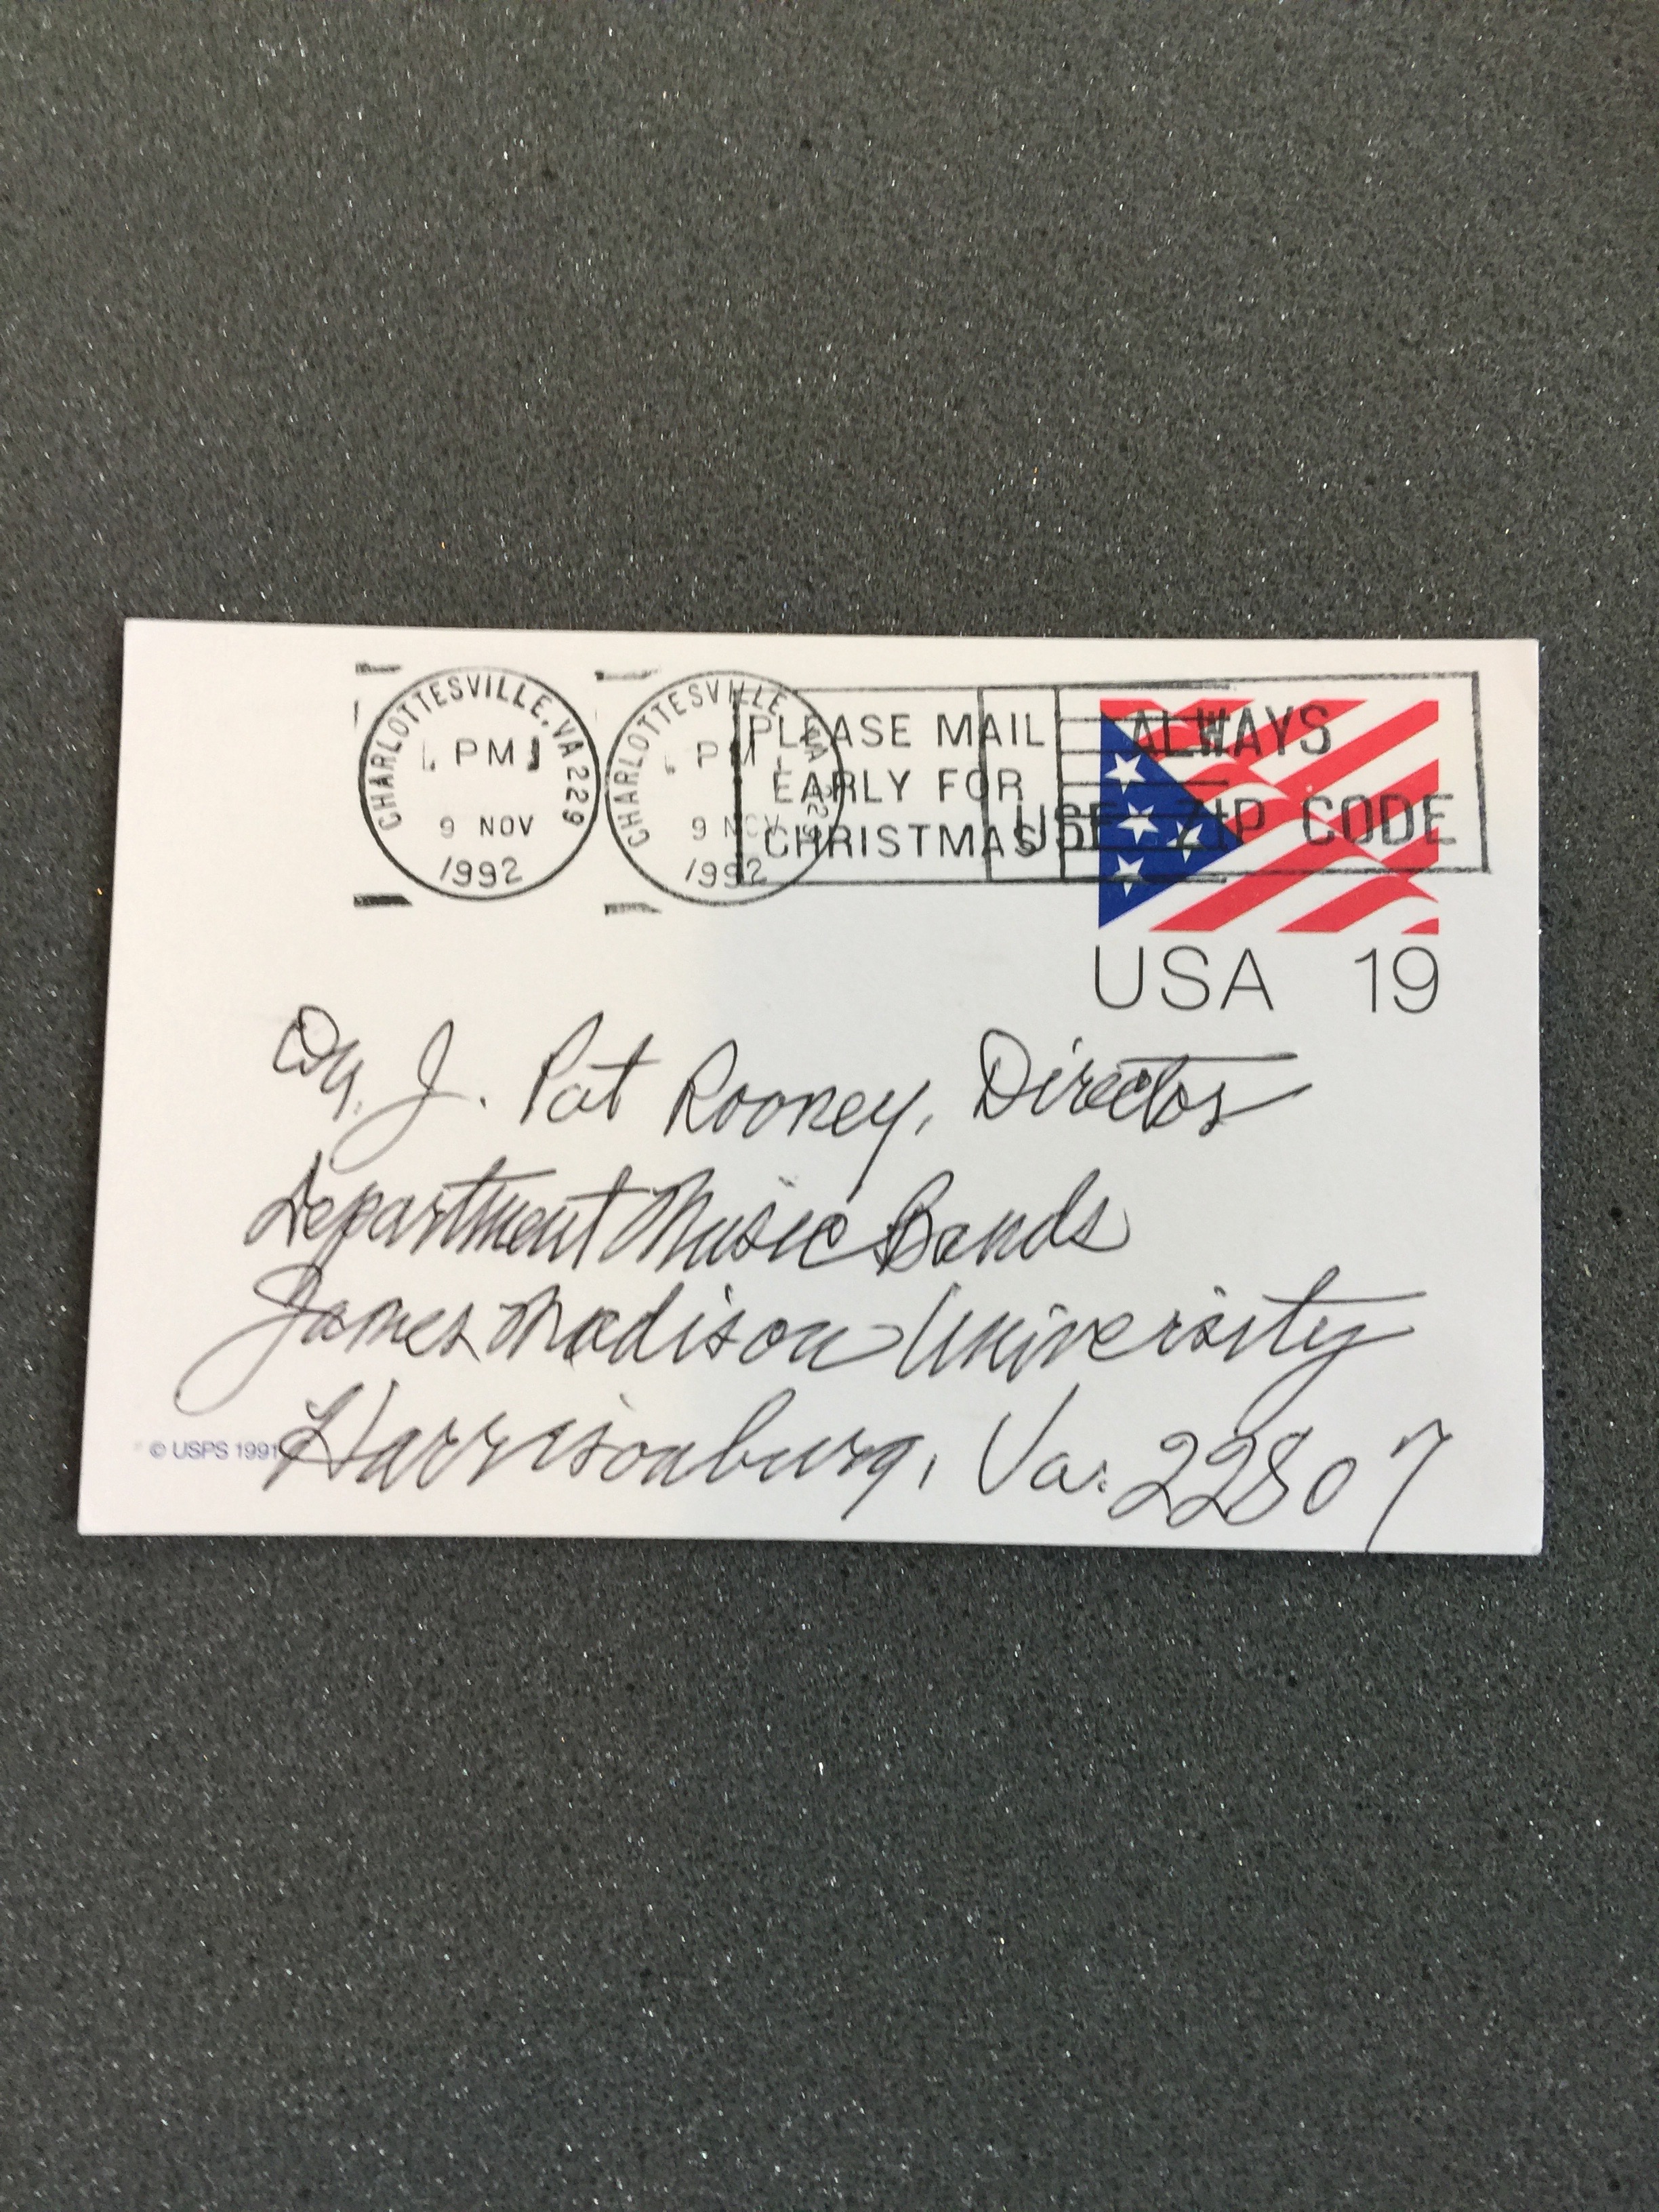 CHARLOTTESVILLE, VA 229
PM
9 NOV
1992
CHARLOTTESVILLE VA 229
PM
9 NOV
1992
PLEASE MAIL
EARLY FOR
CHRISTMAS
ALWAYS
USE ZIP CODE
USA 19
Dr. J. Pat Rooney, Director
Department Music Bands
James Madison University
Harrisonburg, Va. 22807
© USPS 1991